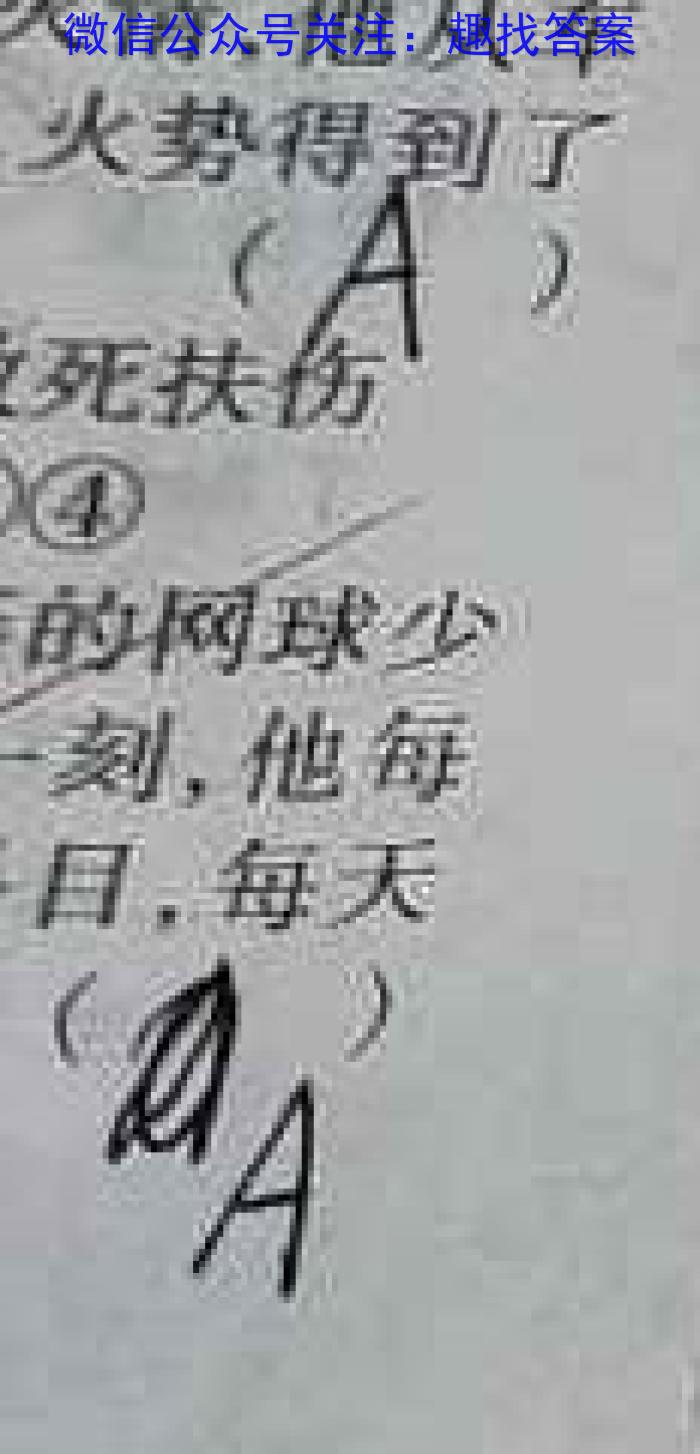 微信公众号关注：趣找答案
火势得到了
（ A ）
死扶伤
④
的网球少
一刻，他每
目，每天
（ ）
A